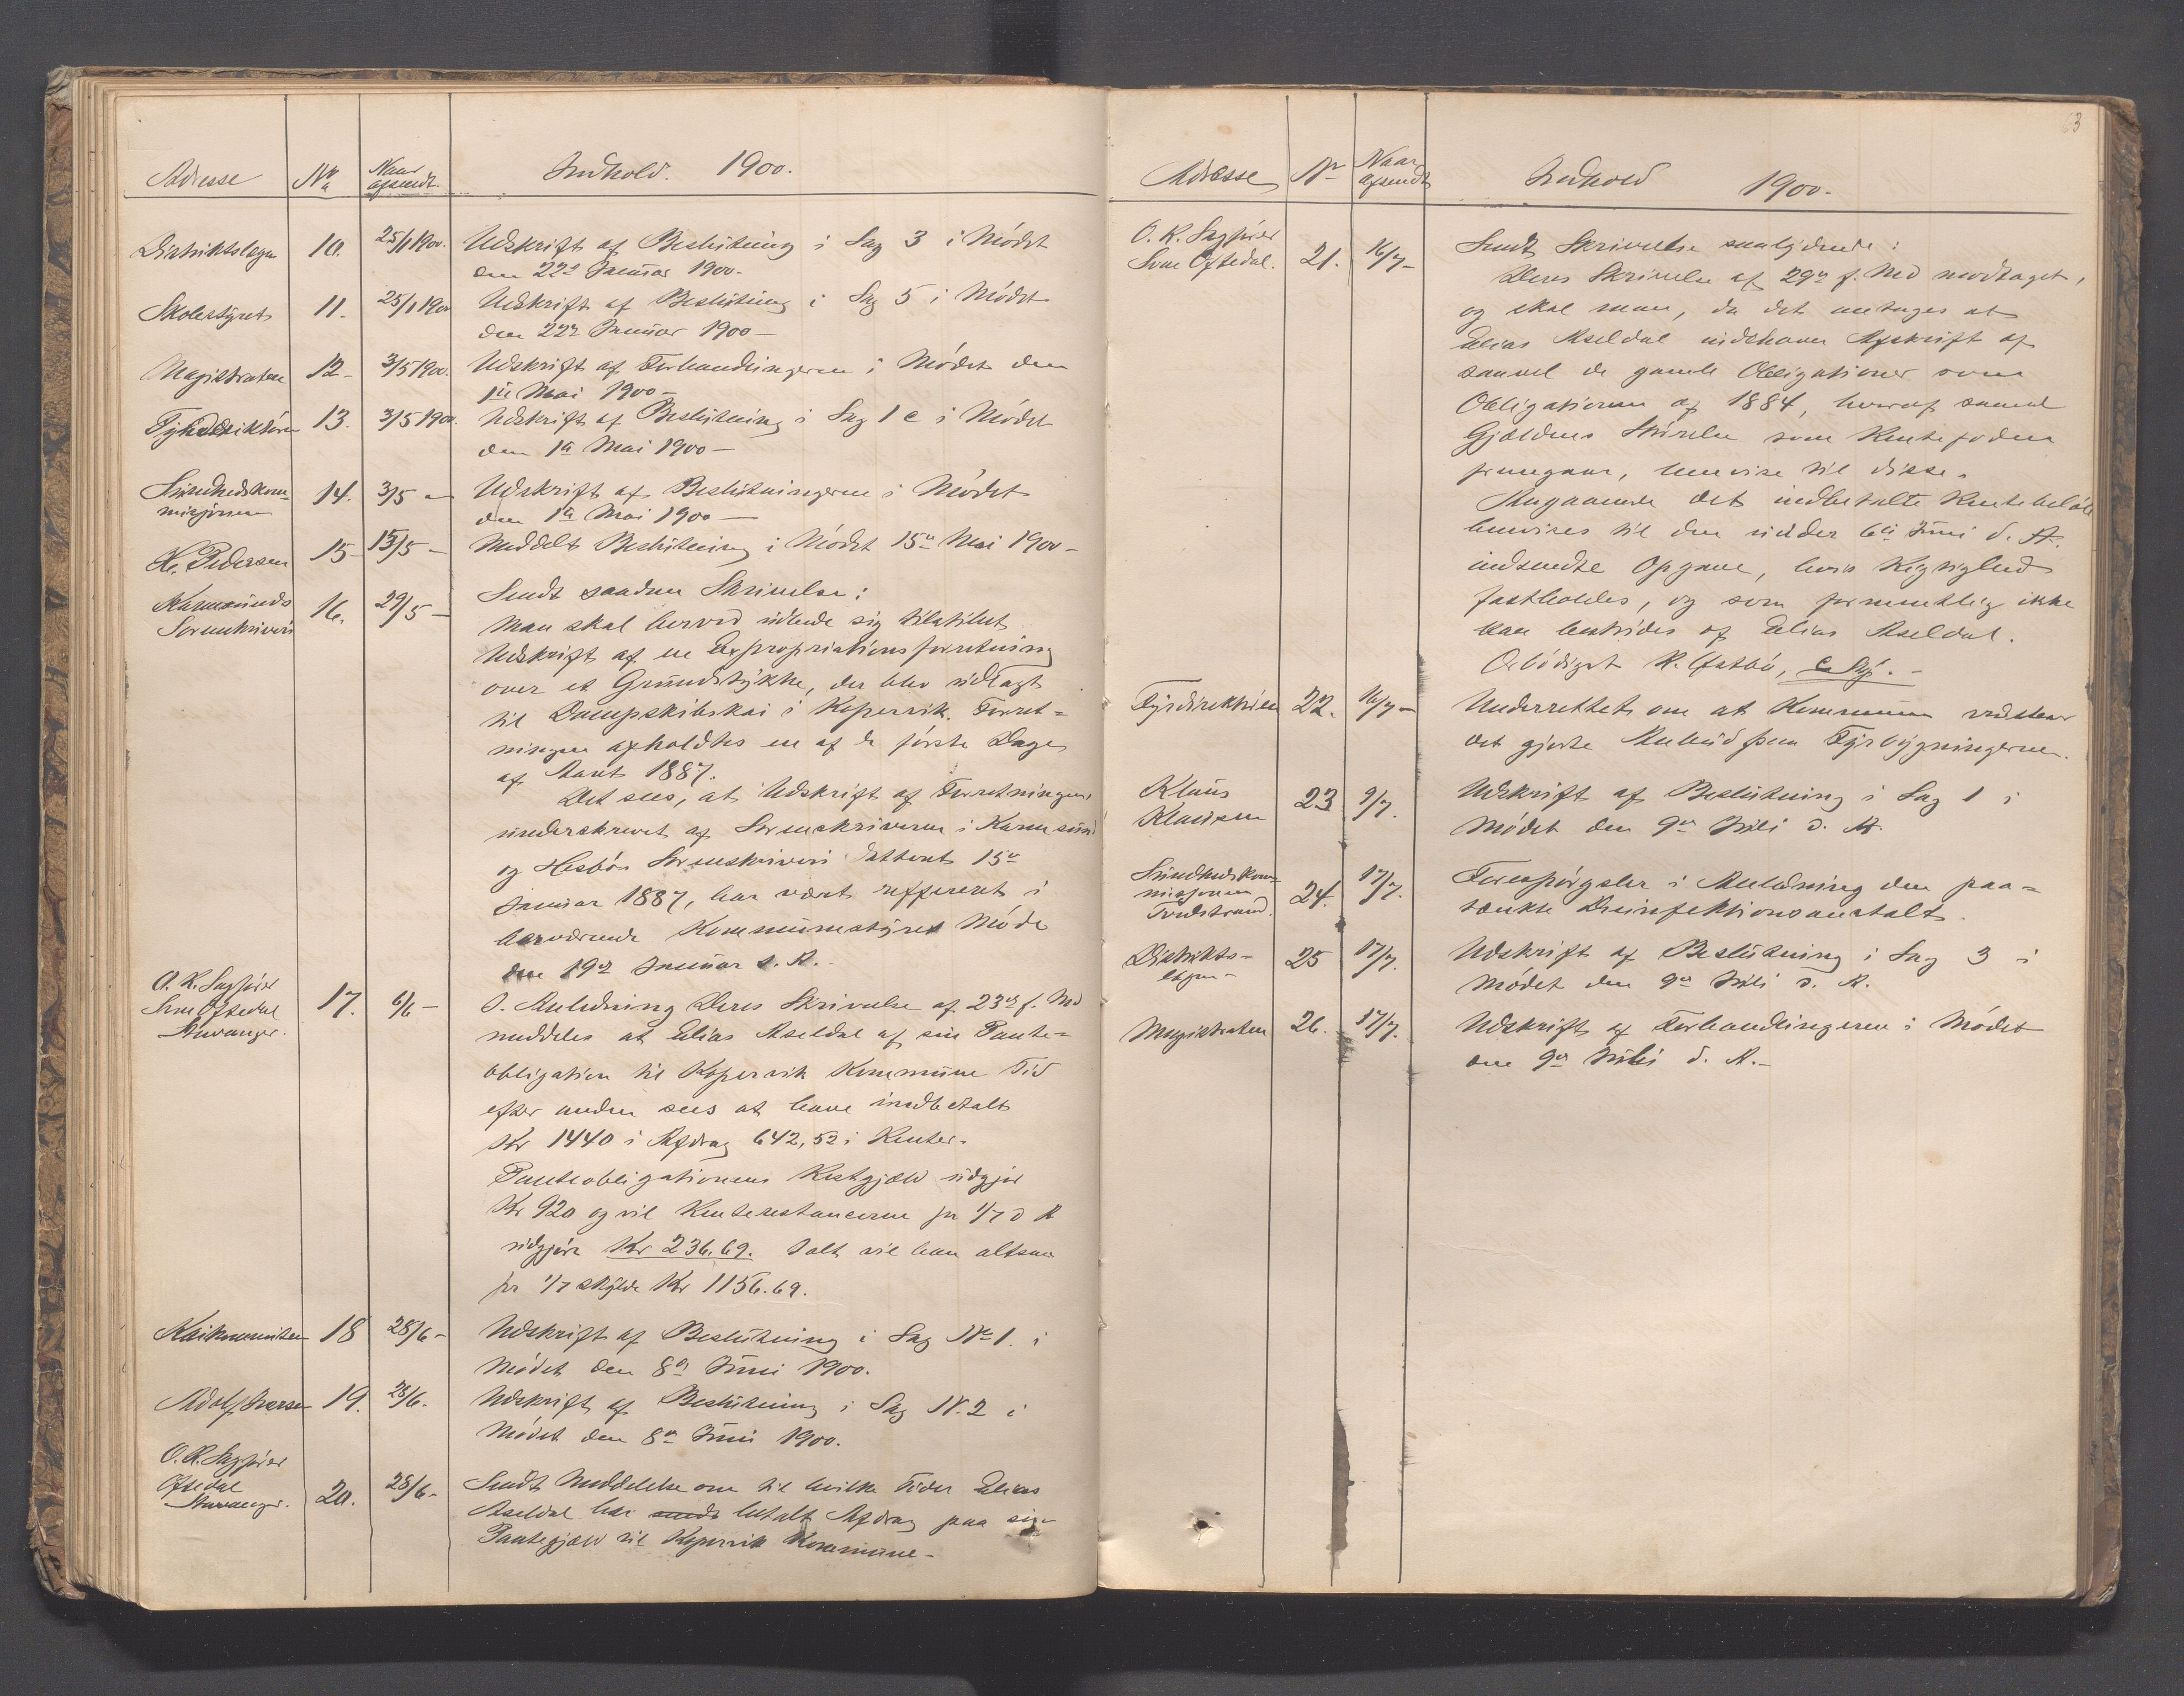 Adresse No Naar afsendt. Indhold. 1900.
Distriktslægen 10. 25/1 1900. Udskrift af Beslutning i Sag 3 i Mödet
den 22de Januar 1900.
Skolestyret 11. 25/1 1900 Udskrift af Beslutning i Sag 5 i Mödet
den 22de Januar 1900 –
Magistraten 12 – 3/5 1900. Udskrift af Forhandlingerne i Mödet den
1ste Mai 1900 –
Fyrdirektören 13. 3/5 1900. Udskrift af Beslutning i Sag 1 c i Mödet
den 1ste Mai 1900 –
Sundhedskom-
misjonen 14. 3/5 – Udskrift af Beslutningerne i Mödet
den 1ste Mai 1900 –
H. Pedersen 15 – 15/5 – Meddelt Beslutning i Mödet 15de Mai 1900 –
Karmsunds
Sorenskriveri 16. 29/5 – Sendt saadan Skrivelse:
Man skal herved udbede sig tilstillet
Udskrift af en Expropriationsforretning
over et Grundstykke, der blev udlagt
til Dampskibskai i Kopervik. Forret=
ningen afholdtes en af de förste Dage
af Aaret 1887.
Det sees, at Udskrift af Forretningen,
underskrevet af Sorenskriveren i Karmsund
og Hesbö Sorenskriveri datteret 15de
Januar 1887, har været refereret i
herværende Kommunestyres Möde
den 19de Januar s. A. –
O. R. Sagförer
Sven Oftedal
Stavanger. 17. 6/6 – I Anledning Deres Skrivelse af 23de f. Md
meddeles at Elias Aseldal af sin Pante=
obligation til Kopervik Kommune Tid
efter anden sees at have indbetalt
Kr 1440 i Afdrag 642,52 i Renter.
Panteobligationens Restgjæld udgjör
Kr 920 og vil Renterestancerne pr 1/7 d A
udgjöre Kr 236.69. Ialt vil han altsaa
pr 1/7 skylde Kr 1156.69.
Kaikommiteen 18 28/6 – Udskrift af Beslutning i Sag No 1. i
Mödet den 8de Juni 1900.
Adolf Iversen 19. 28/6. Udskrift af Beslutning i Sag N. 2 i
Mödet den 8de Juni 1900.
O. R. Sagförer
Oftedal
Stavanger. 20. 28/6 – Sendt Meddelelse om til hvilke Tider Elias
Aseldal har sendt betalt Afdrag paa sin
Pantegjæld til Kopervik Kommune –
63
Adresse Nr Naar afsendt Indhold 1900.
O. R. Sagförer
Sven Oftedal. 21. 16/7 – Sendt Skrivelse saalydende:
Deres Skrivelse af 29de f. Md modtaget,
og skal man, da det antages at
Elias Aseldal indehaver Afskrift af
saavel de gamle Obligationer som
Obligationen af 1884, hvoraf saavel
Gjældens Störrelse som Rentefoden
fremgaar, henvise til disse.
Angaaende det indbetalte Rentebelöb
henvises til den under 6te Juni d. A.
indsendte Opgave, hvis Rigtighed
fastholdes, og som formentlig ikke
kan bestrides af Elias Aseldal.
Ærbödigst R. Østbö, c Byf. –
Fyrdirektören 22. 16/7 – Underrettet om at Kommunen vedstaar
det gjorte Anbud paa Fyrbygningerne.
Klaus
Klausen 23 9/7. Udskrift af Beslutning i Sag 1 i
Mödet den 9de Juli d. A.
Sundhedskom-
misjonen
24. 17/7. Forespörgsler i Anledning den paa=
tænkte Desinfektionsanstalt.
Distrikts=
lægen – 25 17/7. Udskrift af Beslutning i Sag 3 i
Mödet den 9de Juli d. A.
Magistraten 26. 17/7. Udskrift af Forhandlingerne i Mödet
den 9de Juli d. A. –